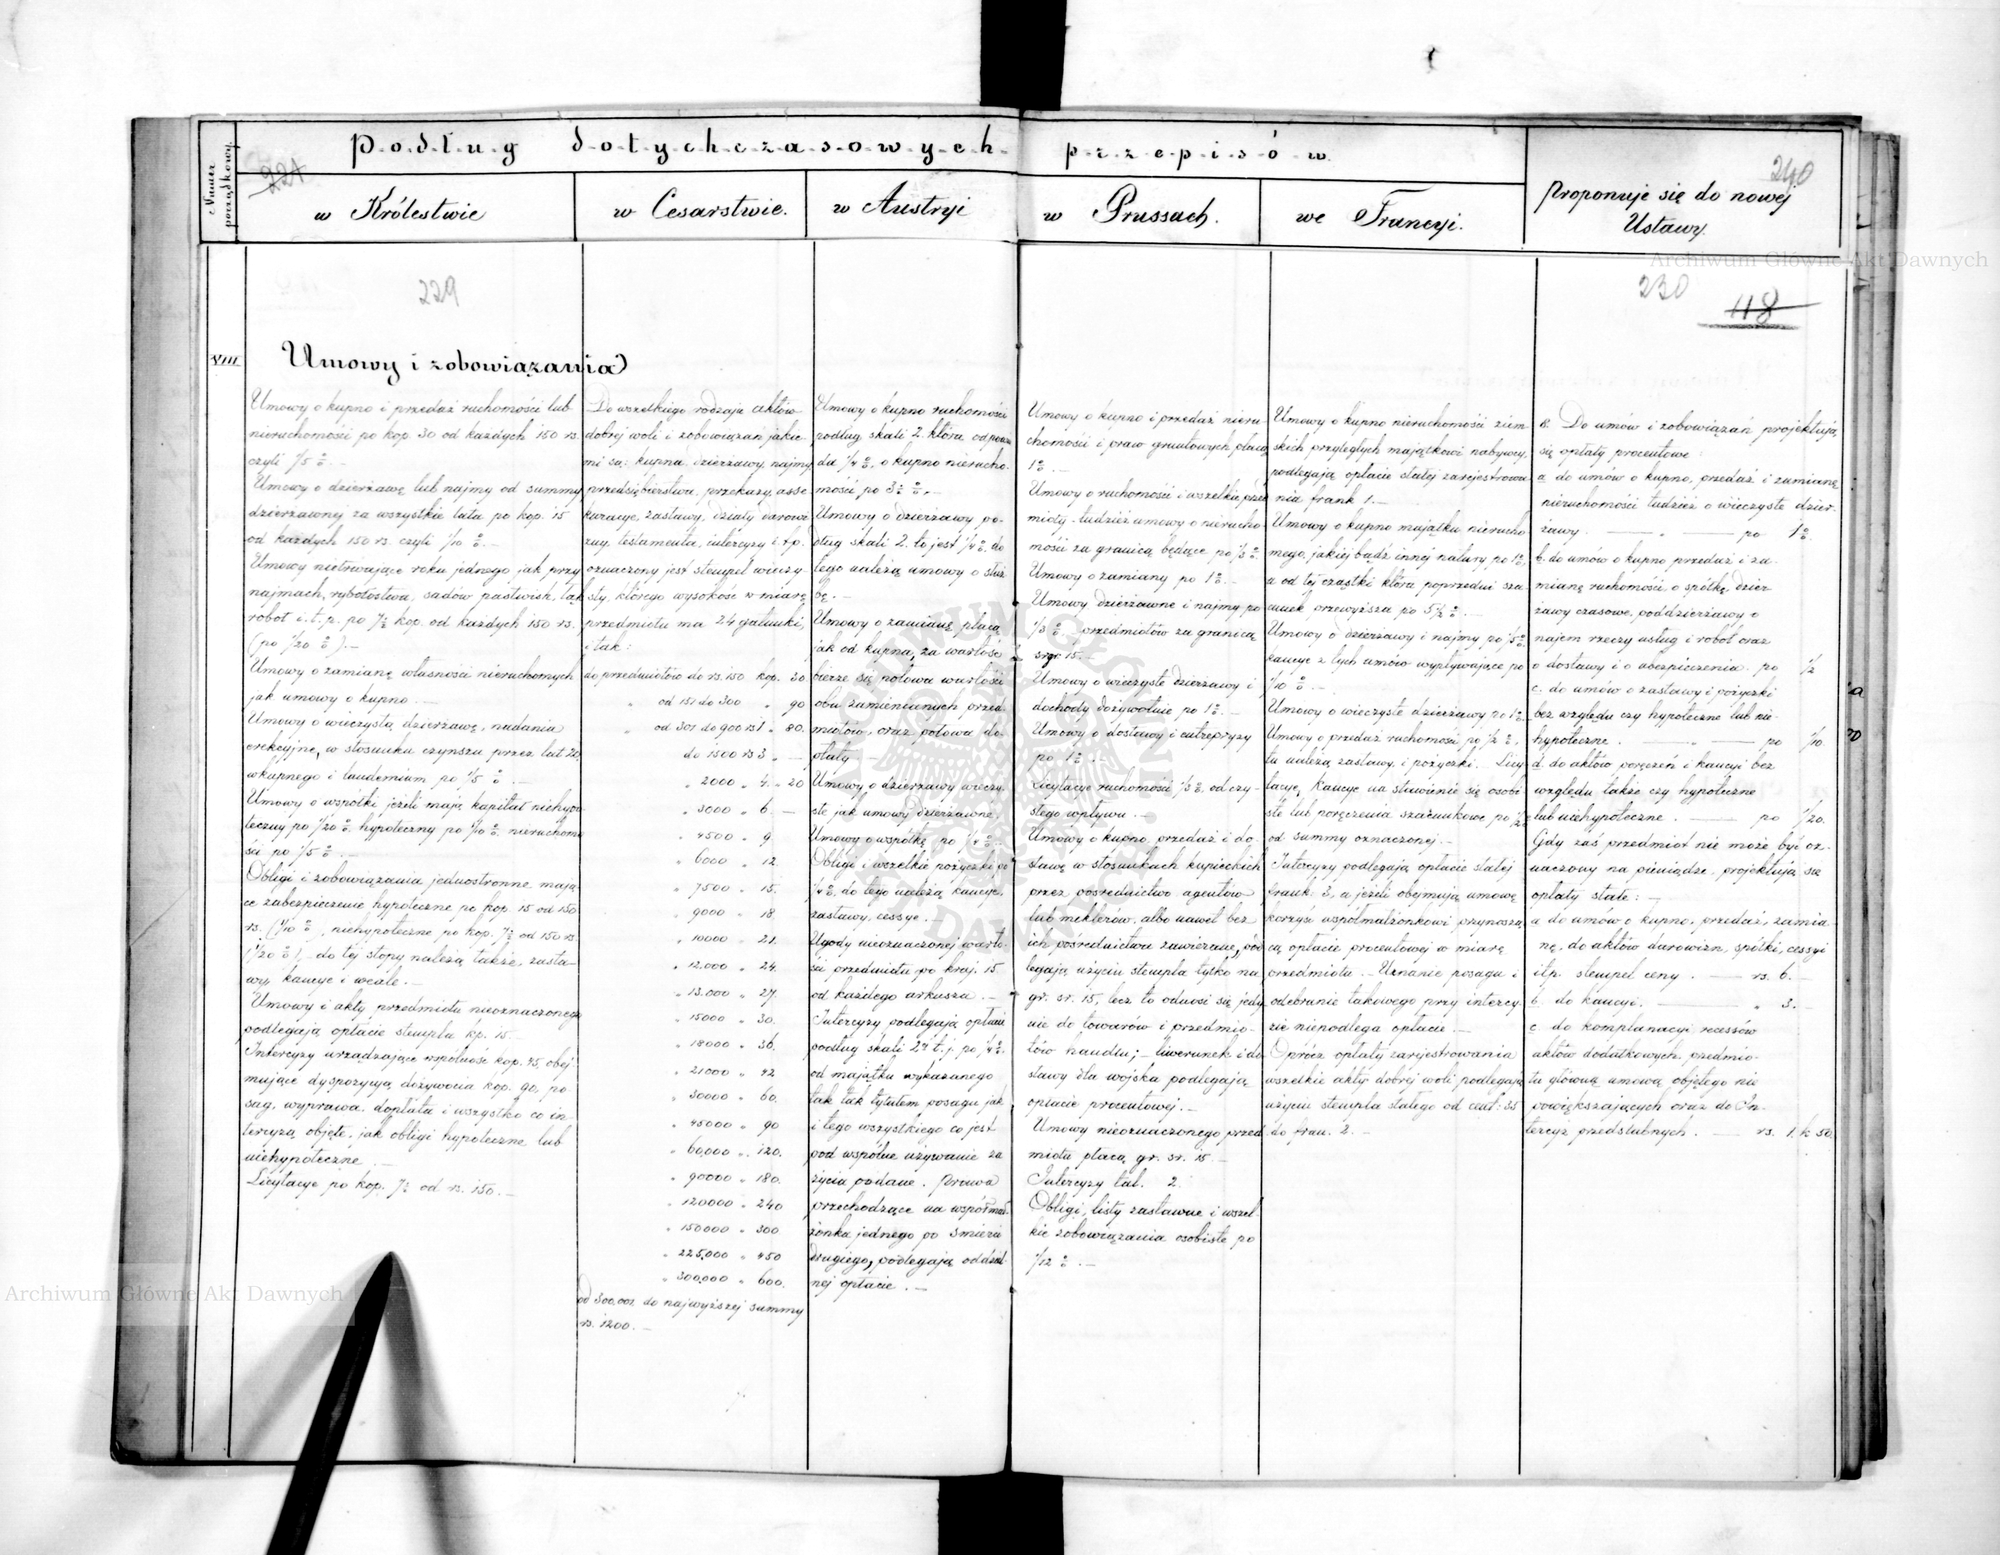 Numer porządkowy
Podług dotychczasowych przepisów
224
240
w Królestwie
w Cesarstwie.
w Austryi
w Prussach.
we Francyi.
Proponuje się do nowej
Ustawy.
229
230
118
VIII
Umowy i zobowiązania
Umowy o kupno i przedaż ruchomości lub
nieruchomości po kop. 30 od każdych 150 rs.
czyli 1/5 %. —
Umowy o dzierżawę lub najmy od summy
dzierżawnej za wszystkie lata po kop. 15
od każdych 150 rs. czyli 1/10 %. —
Umowy nietrwające roku jednego jak przy
najmach, rybołóstwa, sadów pastwisk, tak
robót i. t. p. po 7½ kop. od każdych 150 rs.
(po 1/20 %). —
Umowy o zamianę własności nieruchomych
jak umowy o kupno. —
Umowy o wieczystą dzierżawę, nadania
erekcyjne, w stosunku czynszu przez lat 20,
wkupnego i laudemium po 1/5 %. —
Umowy o wspólki jeżeli mają kapitał niehypo-
teczny po 1/20 %. hypoteczny po 1/10 %. nieruchomo
ści po 1/5 %. —
Obligi i zobowiązania jednostronne mają-
ce zabezpieczenie hypoteczne po kop. 15 od 150
rs. (1/10 %), niehypoteczne po kop. 7½ od 150 rs.
(1/20 %), – do tej stopy należą także, zasta-
wy, kaucye i wcale. —
Umowy i akty przedmiotu nieoznaczonego
podlegają opłacie stempla kp. 15. —
Intercyzy urządzające wspólność kop. 45, obej-
mujące dyspozycyą dożywocia kop. 90, po
sag, wyprawa, dopłata i wszystko co in-
tercyzą objęte, jak obligi hypoteczne lub
niehypoteczne. —
Licytacye po kop. 7½ od rs. 150. —
Do wszelkiego rodzaju aktów
dobrej woli i zobowiązań jakie-
mi są: kupna, dzierżawy, najmy
przedsiębierstwa, przekazy, asse-
kuracye, zastawy, działy darowi
zny, testamenta, intercyzy i. t. p.
oznaczony jest stempel wieczy-
sty, którego wysokość w miarę
przedmiotu ma 24 gatunki,
i tak:
do przedmiotów do rs. 150 kop. 30
" od 151 do 300 " 90
" od 301 do 900 rs 1 " 80.
do 1500 rs 3 " —
" 2000 " 4 " 20
" 3000 " 6. —
" 4500 " 9.
" 6000 " 12.
" 7500 " 15.
" 9000 " 18
" 10000 " 21.
" 12,000 " 24.
" 13.000 " 27.
" 15000 " 30.
" 18000 " 36.
" 21000 " 42
" 30000 " 60.
" 45000 " 90
" 60,000 " 120.
" 90000 " 180.
" 120000 " 240
" 150000 " 300
" 225,000 " 450
" 300,000 " 600.
od 300,002 do najwyższej summy
rs. 1200. —
Umowy o kupno ruchomości
podług skali 2. która odpowia
da 1/4 %, o kupno nierucho-
mości po 3½ %. —
Umowy o dzierżawy po-
dług skali 2. to jest 1/4 %. do
tego należą umowy o służ
bę. —
Umowy o zamianę płacą
jak od kupna, za wartość
bierze się połowa wartości
obu zamienionych przed-
miotów, oraz połowa do-
płaty
Umowy o dzierżawy wieczy-
ste jak umowy dzierżawne.
Umowy o wspólkę po 1/4 %. —
Obligi i wszelkie pożyczki po
1/4 %. do tego należą kaucye,
zastawy, cessye. —
Ugody nieoznaczonej warto-
ści przedmiotu po kraj. 15.
od każdego arkusza. —
Intercyzy podlegają opłacie
podług skali 2éj t. j. po 1/4 %.
od majątku wykazanego
tak tak tytułem posagu jak
i tego wszystkiego co jest
pod wspólne używanie za
życia podane. Prawa
przechodzące na współmał-
żonka jednego po śmierci
drugiego, podlegają oddziel-
nej opłacie. —
Umowy o kupno i przedaż nieru-
chomości i praw gruntowych płacą
1 %. —
Umowy o ruchomości i wszelkie przed
mioty – tudzież umowy o nierucho-
mości za granicą będące po 1/3 %.
Umowy o zamiany po 1 %. —
Umowy dzierżawne i najmy po
1/3 %. – przedmiotów za granicą
srgr. 15. —
Umowy o wieczyste dzierżawy i
dochody dożywotnie po 1 %. —
Umowy o dostawy i entrepryzy
po 1 %. —
Licytacye ruchomości 1/3 %. od czy-
stego wpływu. —
Umowy o kupno, przedaż i do-
stawę w stosunkach kupieckich
przez pośrednictwo agentów
lub meklerów, albo nawet bez
ich pośrednictwa zawierane, pod
legają użyciu stempla tylko na
gr. sr. 15, lecz to odnosi się jedy
nie do towarów i przedmio-
tów handlu; – liwerunek i do-
stawy dla wojska podlegają
opłacie procentowej. —
Umowy nieoznaczonego przed
miotu płacą gr. sr. 15. —
Intercyzy tal. 2.
Obligi, listy zastawne i wszel-
kie zobowiązania osobiste po
1/12 %. —
Umowy o kupno nieruchomości ziem-
skich przyległych majątkowi nabywcy,
podlegają opłacie stałej zarejestrowa
nia frank 1. —
Umowy o kupno majątku nierucho
mego, jakiej bądź innej natury po 1 %,
a od tej cząstki która poprzedni sza-
cunek przewyższa po 5½ %. —
Umowy o dzierżawy i najmy po 1/5 %
kaucye z tych umów wypływające po
1/10 %. —
Umowy o wieczyste dzierżawy po 1 %
Umowy o przedaż ruchomości po 1/2 %,
tu należą zastawy, i pożyczki. Licy
tacye, Kaucye na stawienie się osobi
ste lub poręczenia szacunkowe po 1/2 %
od summy oznaczonej. —
Intercyzy podlegają opłacie stałej
frank: 3, a jeżeli obejmują umowę
korzyść współmałżonkowi przynoszą
cą, opłacie procentowej w miarę
przedmiotu. – Uznanie posagu i
odebranie takowego przy intercy
zie niepodlega opłacie. —
Oprócz opłaty zarejestrowania
wszelkie akty dobrej woli podlegają
użyciu stempla stałego od cent: 35
do fran. 2. —
8. Do umów i zobowiązań projektują
się opłaty procentowe:
a do umów o kupno, przedaż i zamianę
nieruchomości tudzież o wieczyste dzier-
żawy. — " — po 1 %.
b. do umów o kupno przedaż i za-
mianę ruchomości, o spółkę, dzier-
żawy czasowe, poddzierżawy o
najem rzeczy usług i robót oraz
o dostawy i o ubezpieczenia. po 1/2
c. do umów o zastawy i pożyczki
bez względu czy hypoteczne lub nie-
hypoteczne. — " — po 1/10.
d. do aktów poręczeń i kaucyi bez
względu także czy hypoteczne
lub niehypoteczne. — po 1/20.
Gdy zaś przedmiot nie może być oz-
naczony na pieniądze, projektują się
opłaty stałe: —
a do umów o kupno, przedaż, zamia-
nę, do aktów darowizn, spólki, cessyi
itp. stempel ceny. — rs. 6. —
b. do kaucyi. — " 3. —
c. do komplanacyi recessów
aktów dodatkowych, przedmio-
tu główną umową objętego nie
powiększających oraz do In-
tercyz przedślubnych. — rs. 1. k 50.
Archiwum Główne Akt Dawnych
Archiwum Główne Akt Dawnych